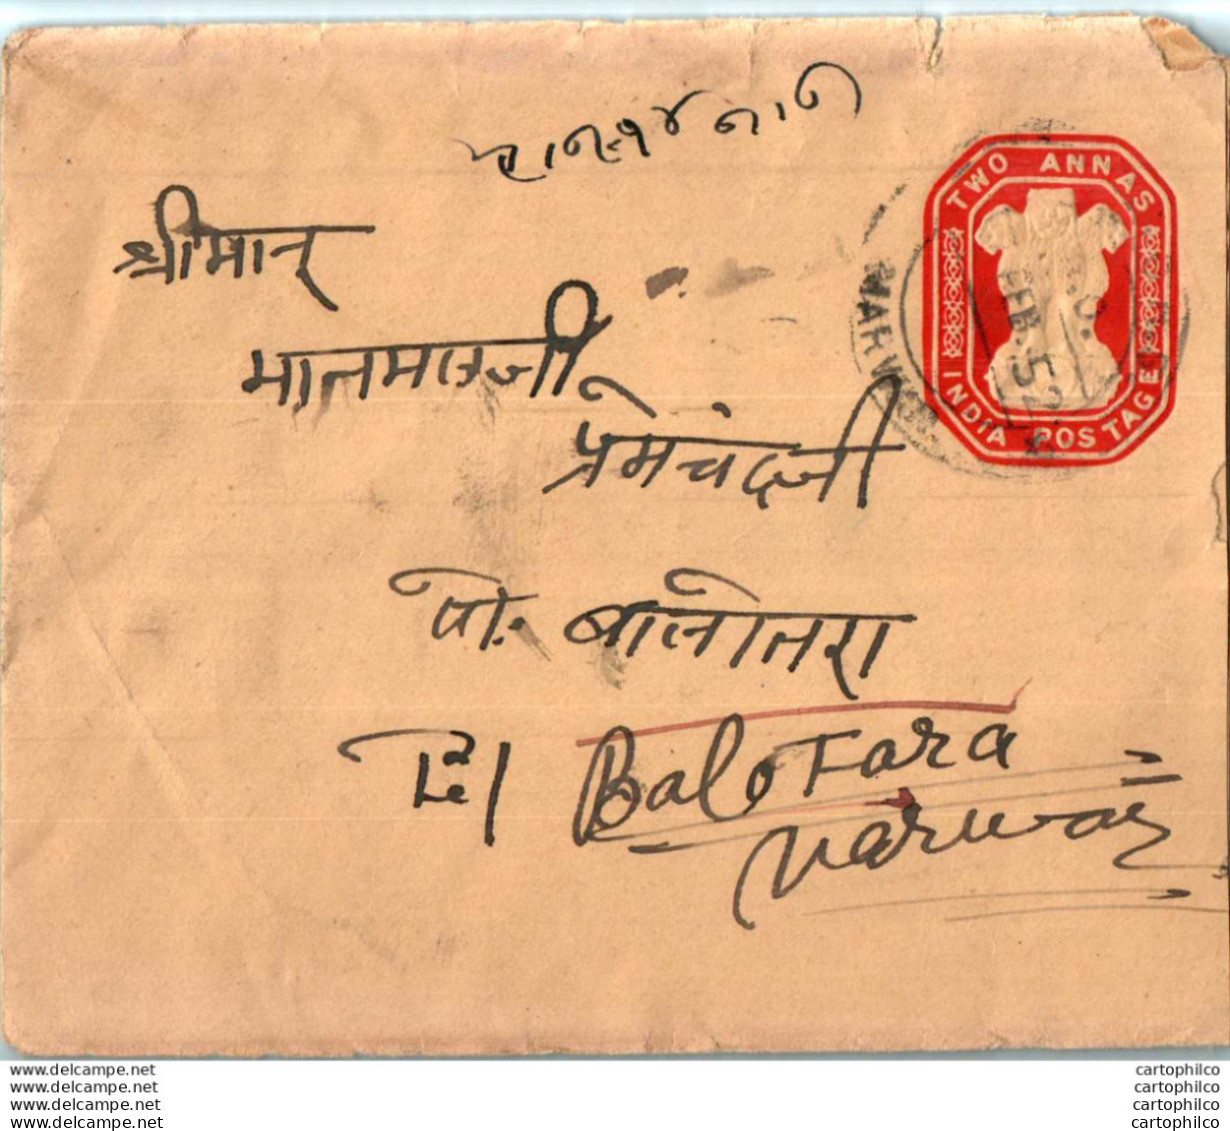 TWO ANNAS
श्रीमान्
मानमलजी
प्रेमचंदजी
पो. बालोतरा
Balotara
Marwar
INDIA POSTAGE
MARW
FEB. 52
www.delcampe.net
www.delcampe.net
www.delcampe.net
www.delcampe.net
cartophilco
cartophilco
cartophilco
cartophilco